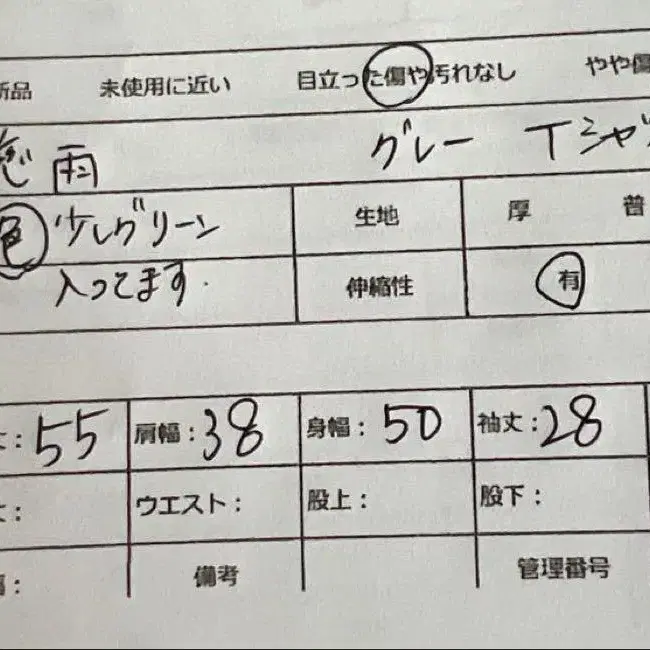 新品 未使用に近い 目立った傷や汚れなし やや傷
雨 グレー Tシャツ
色 少しグリーン 生地 厚 普
入ってます. 伸縮性 有
丈:55 肩幅:38 身幅:50 袖丈:28
丈: ウエスト: 股上: 股下:
幅: 備考 管理番号